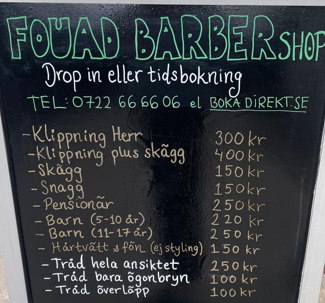 FOUAD BARBERSHOP
Drop in eller tidsbokning
TEL: 0722 66 66 06 el BOKADIREKT.SE
- Klippning Herr 300 kr
- Klippning plus skägg 400 kr
- Skägg 150 kr
- Snagg 150 kr
- Pensionär 250 kr
- Barn (5-10 år) 220 kr
- Barn (11-17 år) 250 kr
- Hårtvätt & fön (ej styling) 150 kr
- Tråd hela ansiktet 250 kr
- Tråd bara ögonbryn 100 kr
- Tråd överläpp 100 kr